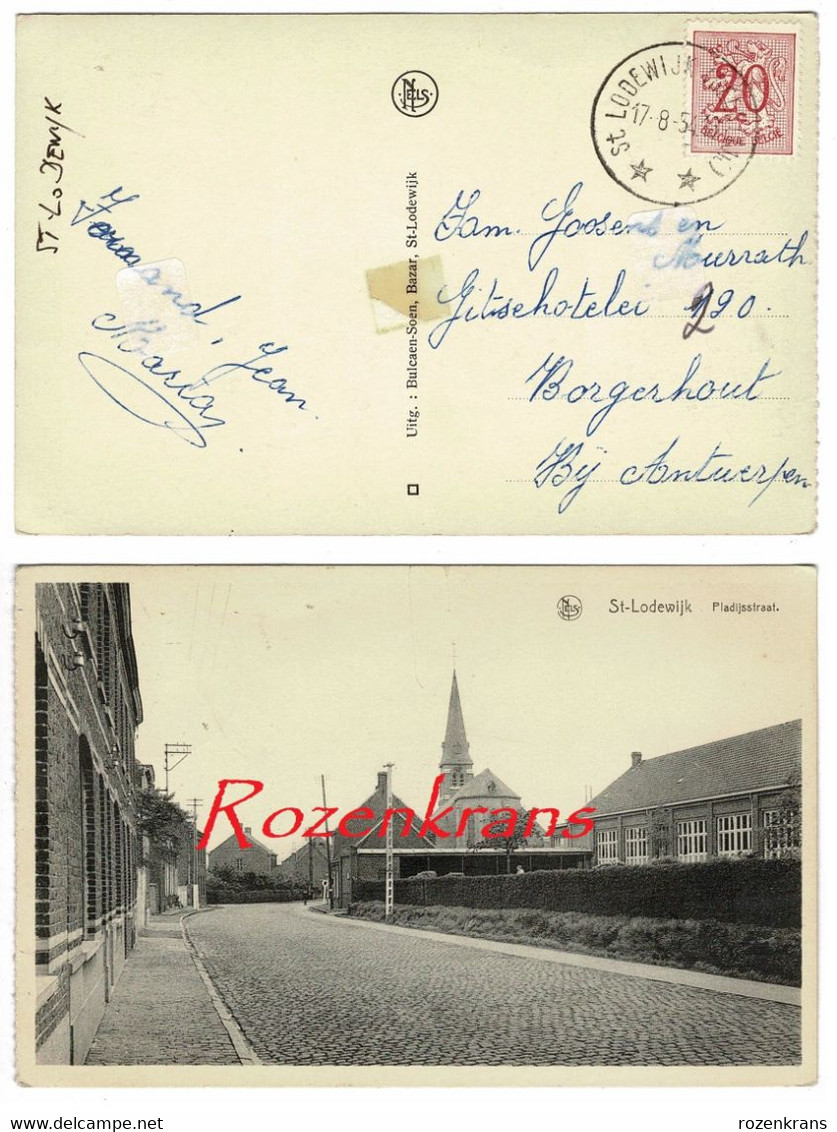 ST LODEWIJK
NELS
Uitg. : Bulcaen-Soen, Bazar, St-Lodewijk
St LODEWIJK
17-8-54
20
BELGIQUE BELGIË
Jean
Maria
Fam. Goosens en
Murrath
Gitschotelei 190.
2
Borgerhout
Bij Antwerpen
NELS
St-Lodewijk Pladijsstraat.
Rozenkrans
www.delcampe.net
rozenkrans